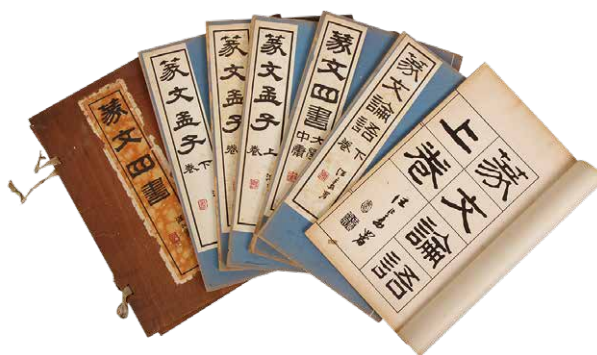 篆文四書
篆文孟子 下卷
篆文孟子 卷
篆文孟子 上卷
篆文四書 大學 中庸
篆文論語 下卷
篆文論語
上卷